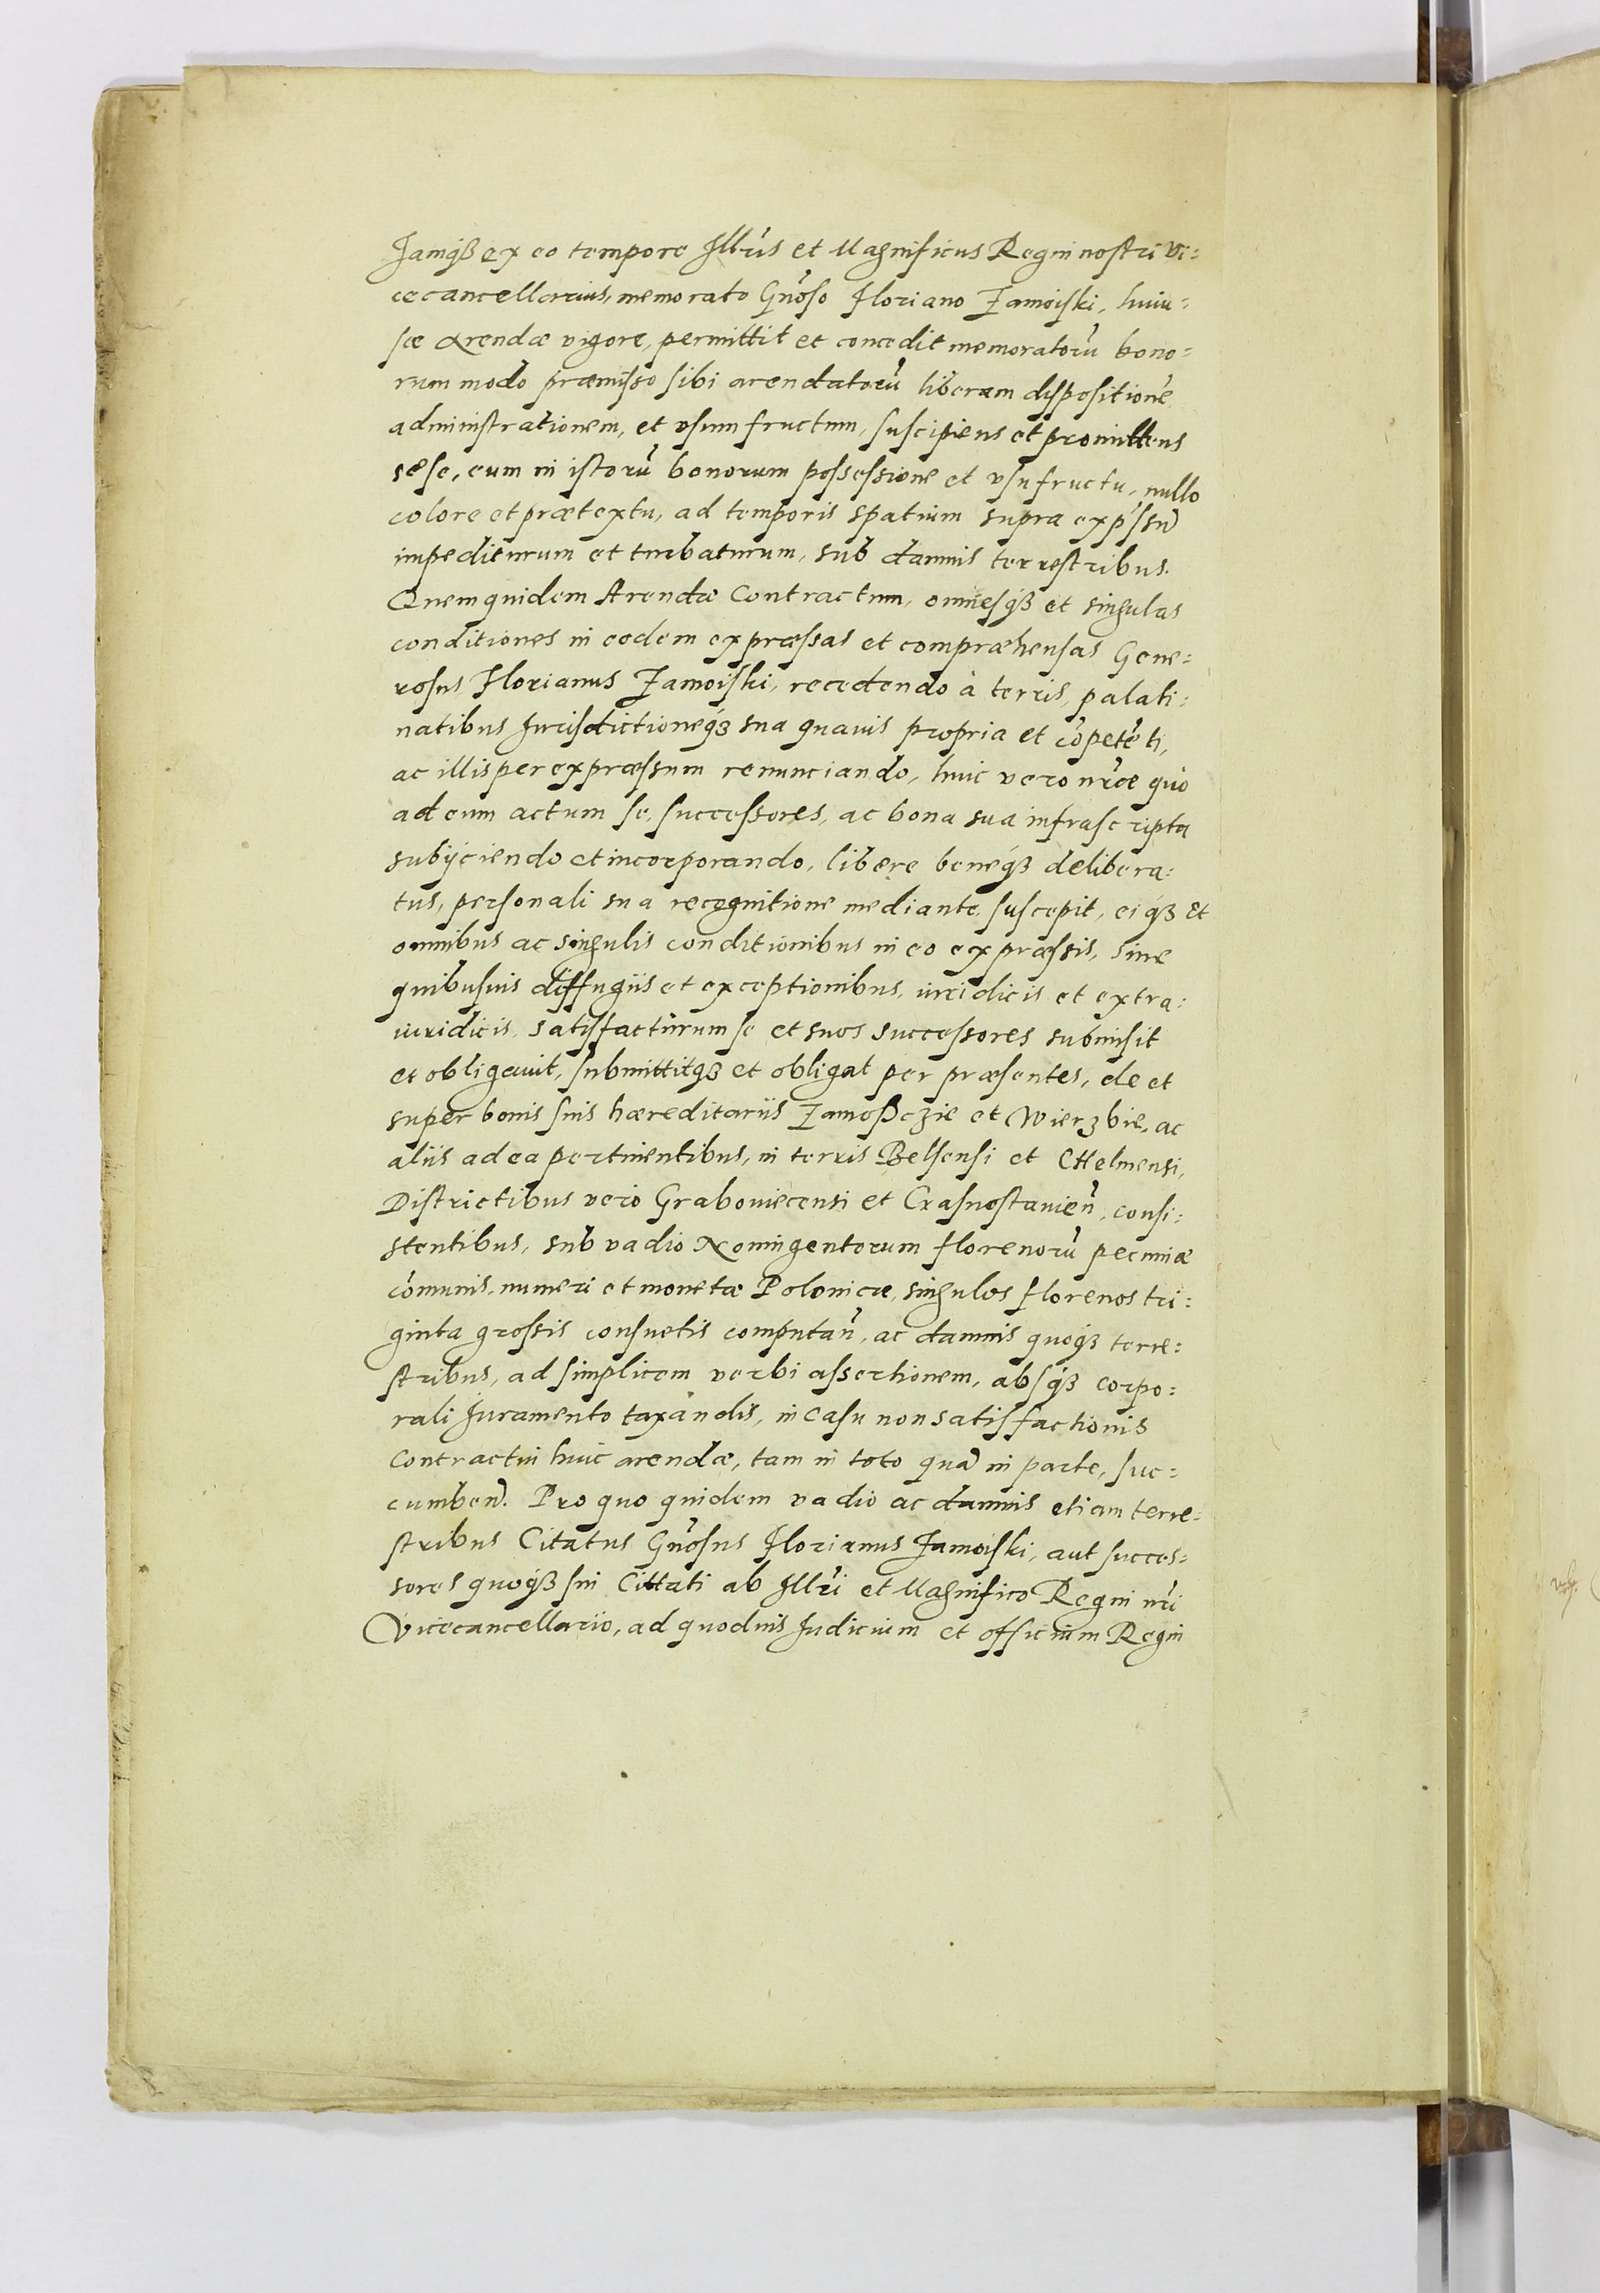 Jamqȝ ex eo tempore Illris et Magnificus Regni nostri Vi=
cecancellarius, memorato Gnoso Floriano Zamoiski, huiu=
sce Arendæ vigore, permittit et concedit memoratorũ bono=
rum modo præmisso sibi arendatorũ liberam dispositionẽ
administrationem, et vsumfructum, suscipiens et promittens
sese, eum in istorũ bonorum possessione et vsufructu, nullo
colore et prætextu, ad temporis spatium supra exp̃ssũ
impediturum et turbaturum, sub damnis terrestribus.
Quemquidem Arendæ Contractum, omnesqȝ et singulas
conditiones in eodem expræssas et compræhensas Gene=
rosus Florianus Zamoiski, recedendo à terris, palati=
natibus Jurisdictioneqȝ sua quauis propria et cõpetẽti,
ac illis per expræssum renunciando, huic vero nr̃æ quo
ad eum actum se, successores, ac bona sua infrascripta
subijciendo et incorporando, libere beneqȝ delibera=
tus, personali sua recognitione mediante, suscepit, eiqȝ et
omnibus ac singulis conditionibus in eo expræssis, sine
quibusuis diffugiis et exceptionibus, iuridicis et extra=
iuridicis, satisfacturum se et suos successores submisit
et obligauit, submittitqȝ et obligat per præsentes, de et
super bonis suis hæreditariis Zamoßczie et Wierzbie, ac
aliis ad ea pertinentibus, in terris Belsensi et CHelmensi,
Districtibus vero Grabouiecensi et Crasnostauieñ, consi=
stentibus, sub vadio Nonningentorum florenorũ pecuniæ
cõmunis, numeri et monetæ Polonicæ, singulos florenos tri=
ginta grossis consuetis computañ, ac damnis quoqȝ terre=
stribus, ad simplicem verbi assertionem, absqȝ corpo=
rali Juramento taxandis, in casu non satisfactionis
Contractui huic arendæ, tam in toto quã in parte, suc=
cumbeñ. Pro quo quidem vadio ac damnis etiam terre=
stribus Citatus Gnosus Florianus Zamoiski, aut succes=
sores quoqȝ sui Cittati ab Illri et Magnifico Regni nri
Vicecancellario, ad quoduis Judicium et officium Regni